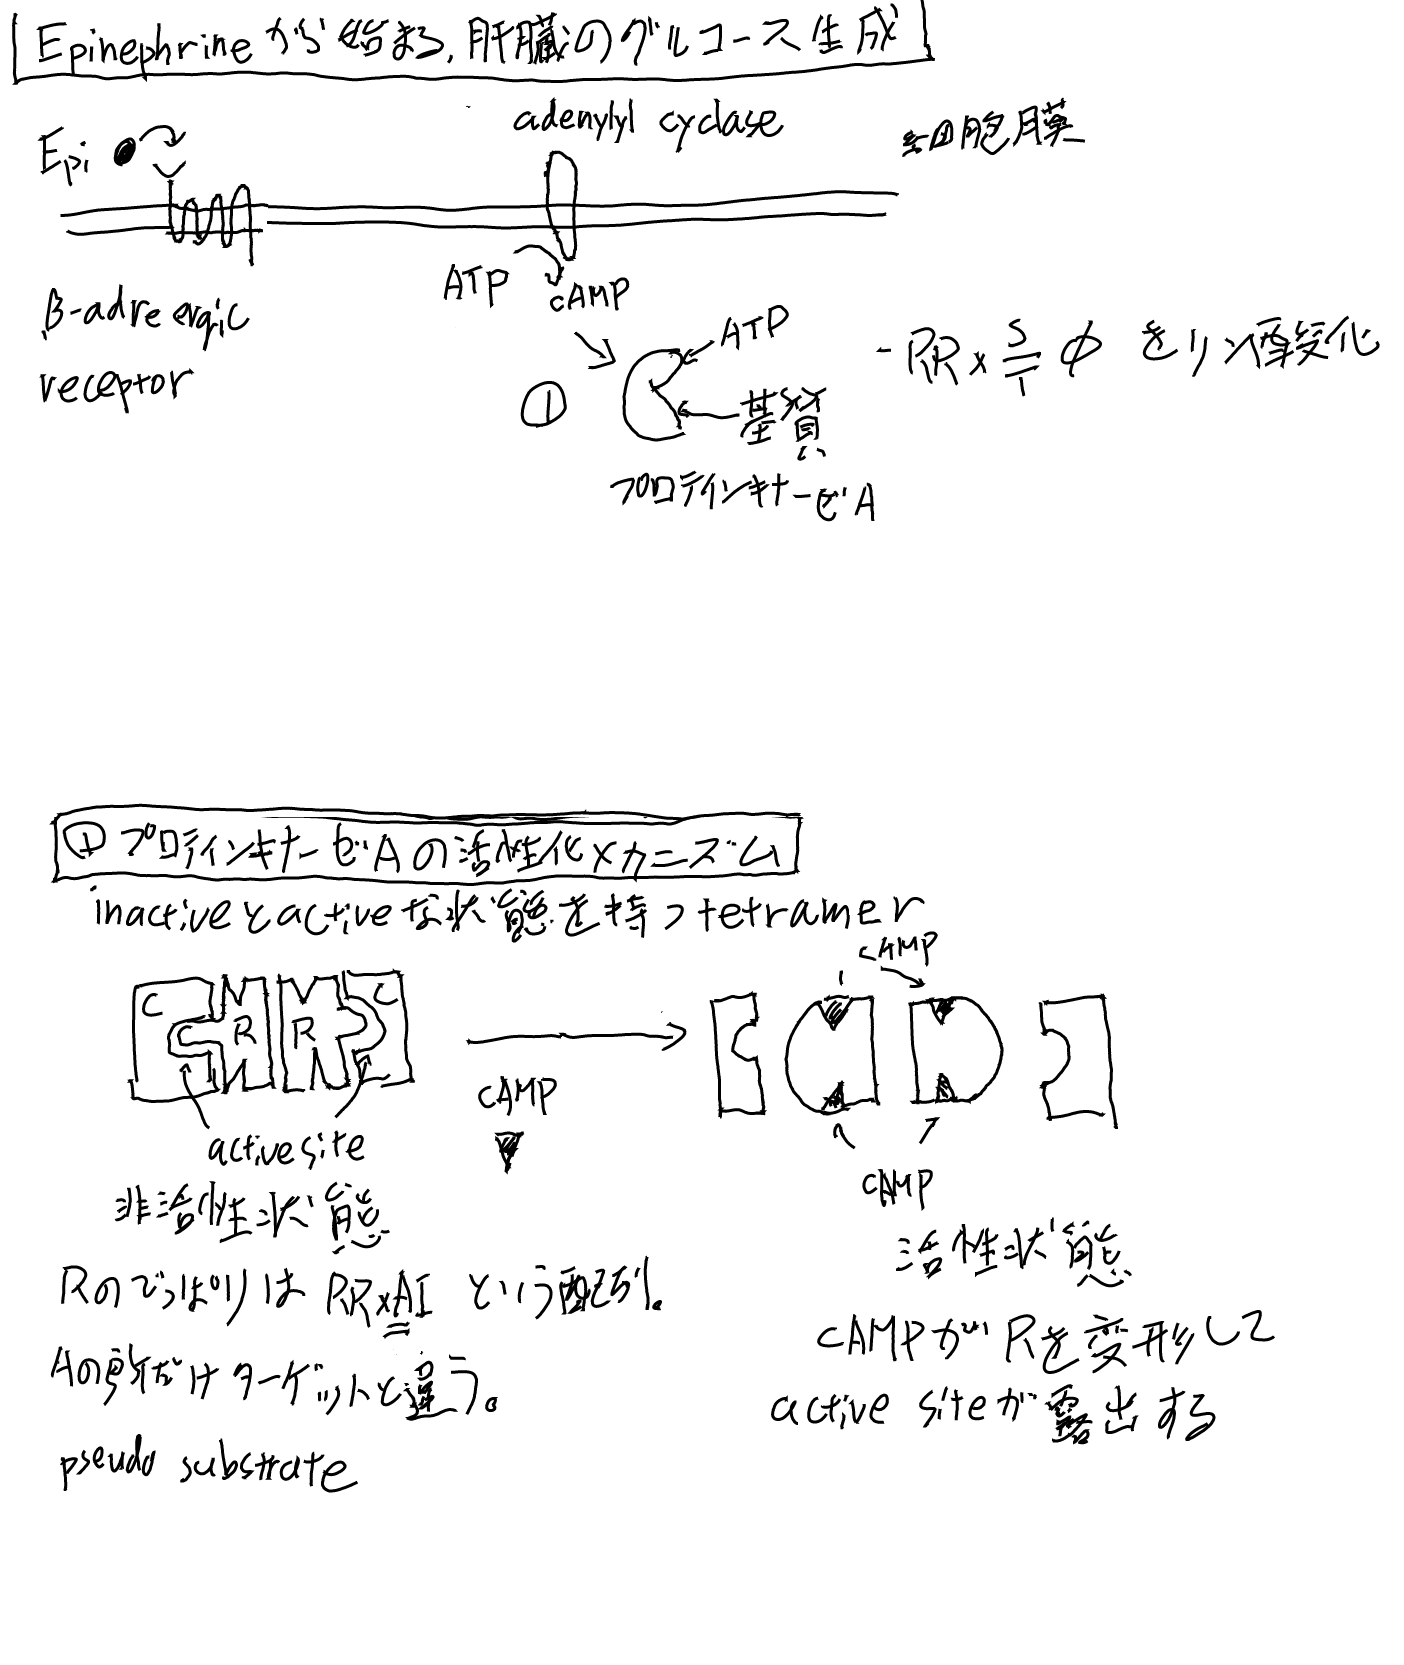 Epinephrineから始まる,肝臓のグルコース生成
adenylyl cyclase
細胞膜
Epi
ATP
cAMP
β-adreergic
receptor
①
ATP
基質
プロテインキナーゼA
-RRx S/T Φ をリン酸化
①プロテインキナーゼAの活性化メカニズム
inactiveとactiveな状態を持つtetramer
C
R
R
C
active site
非活性状態
cAMP
cAMP
cAMP
活性状態
Rのでっぱりは RRxAI という配列。
Aの所だけターゲットと違う。
pseudo substrate
cAMPがRを変形して
active siteが露出する